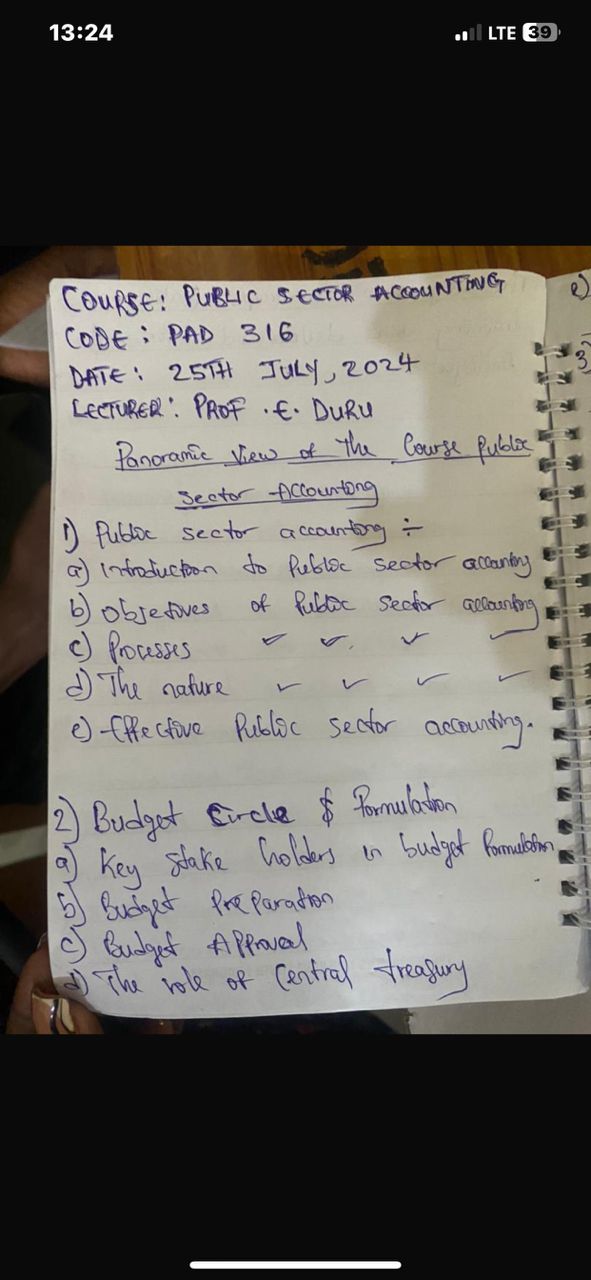 13:24
LTE 39
COURSE: PUBLIC SECTOR ACCOUNTING
CODE: PAD 316
DATE: 25TH JULY, 2024
LECTURER: PROF .E. DURU
Panoramic View of the Course Public
Sector Accounting
1) Public sector accounting ÷
a) Introduction to Public sector accounting
b) Objectives of Public Sector accounting
c) Processes ✓ ✓ ✓ ✓
d) The nature ✓ ✓ ✓ ✓
e) Effective Public sector accounting.
2) Budget Circle $ Formulation
a) Key Stake holders in budget Formulation
b) Budget Preparation
c) Budget Approval
d) The role of Central treasury
e)
3